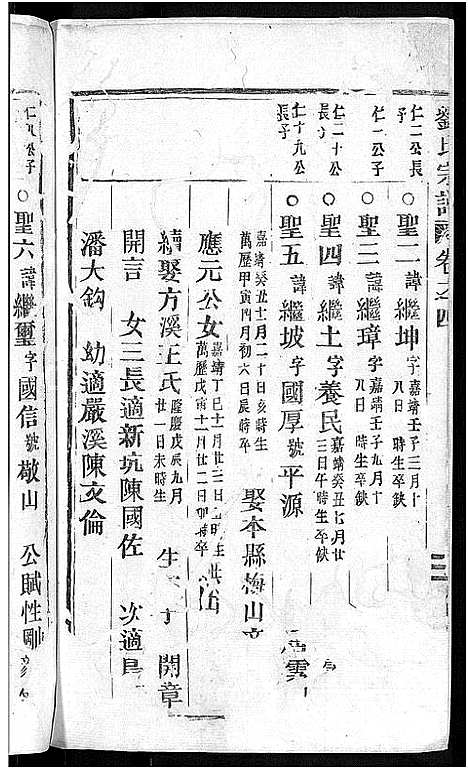 劉氏宗譜
卷之四
三
仁二公長子
聖二諱繼坤字嘉靖壬子三月十八日時生卒缺
仁一公子
聖三諱繼璋字嘉靖壬子九月十八日時生卒缺
仁二十公長子
聖四諱繼土字養民嘉靖癸丑七月廿三日午時生卒缺
仁十九公長子
聖五諱繼坡字國厚號平源
嘉靖癸丑十二月二十日亥時生
萬曆甲寅四月初六日辰時卒
娶本縣梅山
雲
應元公女嘉靖丁巳十一月廿三日
萬曆戊寅十一月廿二日卯時卒
續娶方溪王氏隆慶戊辰九月廿一日未時生
生
開章
開言
女三長適新坑陳國佐
次適
潘大鈞
幼適嚴溪陳文倫
公子
聖六諱繼璽字國信號敬山
公賦性剛